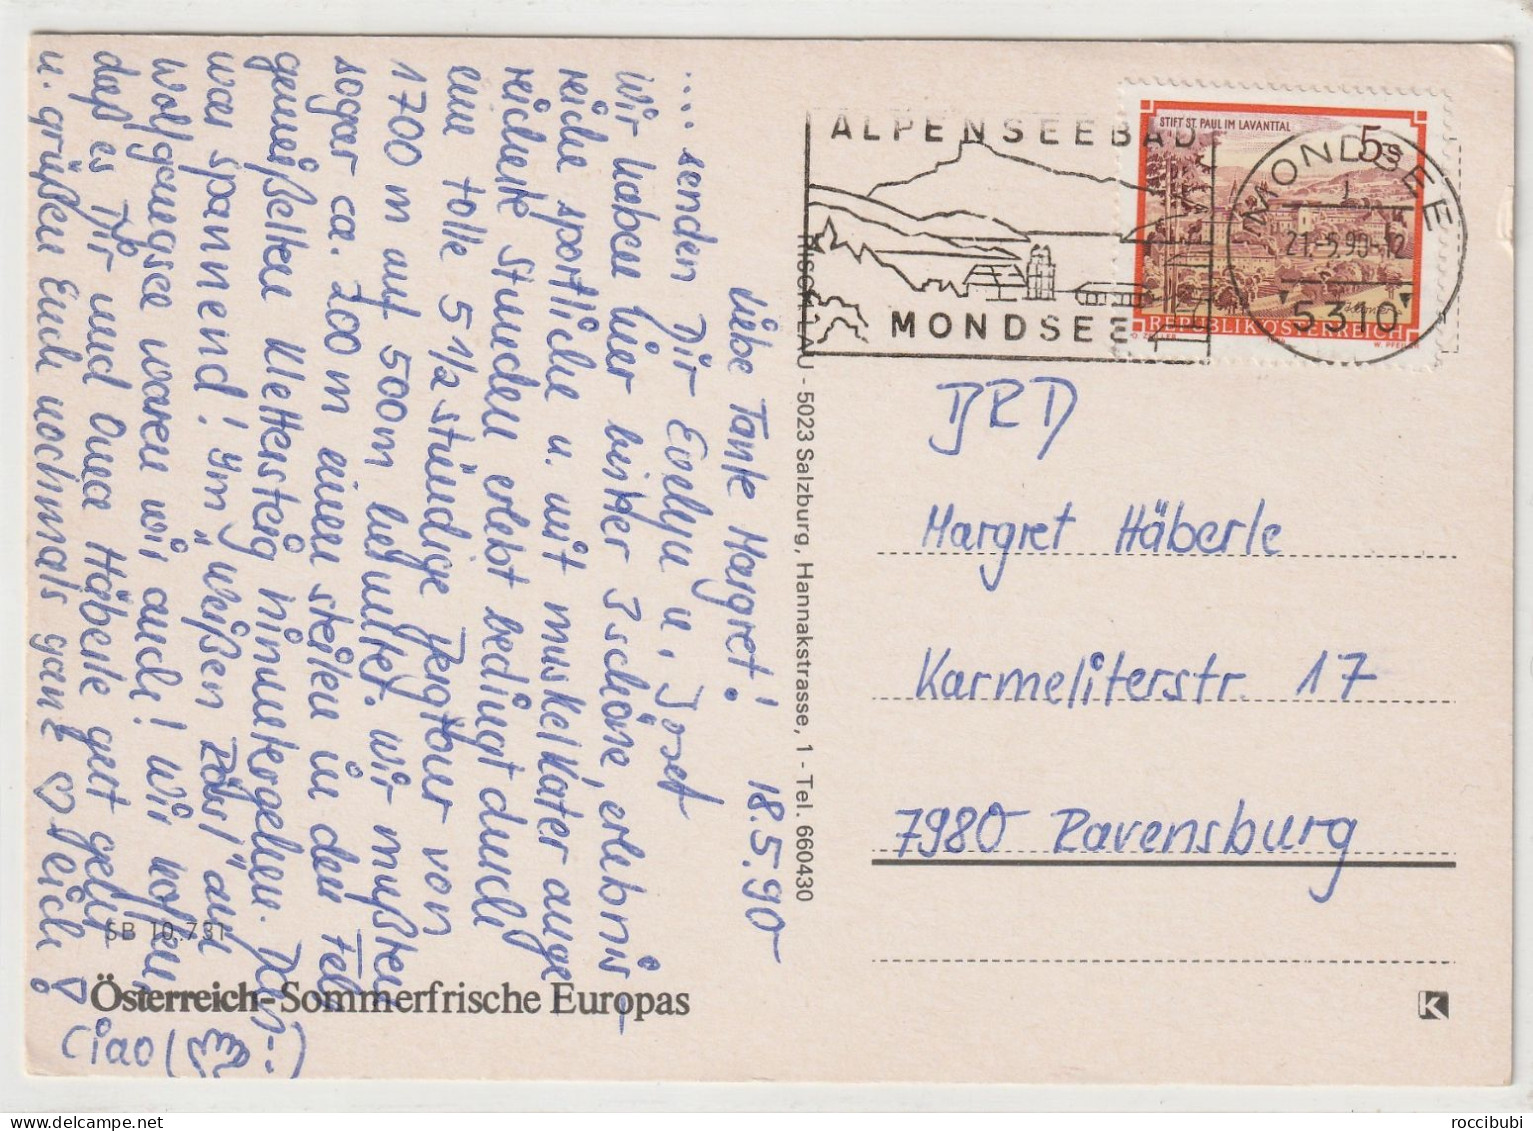 Liebe Tante Margret! 18.5.90
... senden Dir Evelyn u. Josef
Wir haben hier bisher 3 schöne, erlebnis-
reiche sportliche u. mit muskelkater ange-
reicherte Stunden erlebt bedingt durch
eine tolle 5 1/2 stündige Bergtour von
1700 m auf 500m herunter. Wir mußten
sogar ca. 200 m einen steilen in den Fels
gemeißelten Klettersteig hinuntergehen. Das
war spannend! Im "weißen Rößl" am
Wolfgangsee waren wir auch! Wir hoffen,
daß es Dir und Oma Häberle gut geht
u. grüßen Euch nochmals ganz ♡ lich!
Ciao
SB 10.731
Österreich-Sommerfrische Europas
RISCH-LAU - 5023 Salzburg, Hannakstrasse, 1 - Tel. 660430
ALPENSEEBAD
MONDSEE
STIFT ST. PAUL IM LAVANTTAL
5S
REPUBLIK ÖSTERREICH
MONDSEE
21.-5.90-12
5310
BRD
Margret Häberle
Karmeliterstr. 17
7980 Ravensburg
K
roccibubi